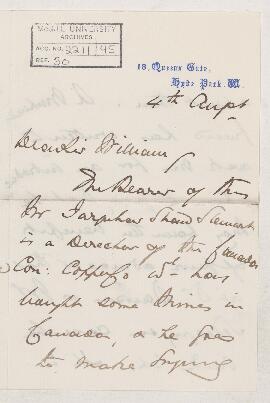 McGILL UNIVERSITY
ARCHIVES
ACC. NO. 2211/95
REF. 30
18, Queens Gate,
Hyde Park. W.
4th Augt
Dear Sir William
The Bearer of this
Mr Farquhar Shaw Stewart
is a Director of the Canada
Con: Copper Co Ld who have
bought some Mines in
Canada, & he goes
to make